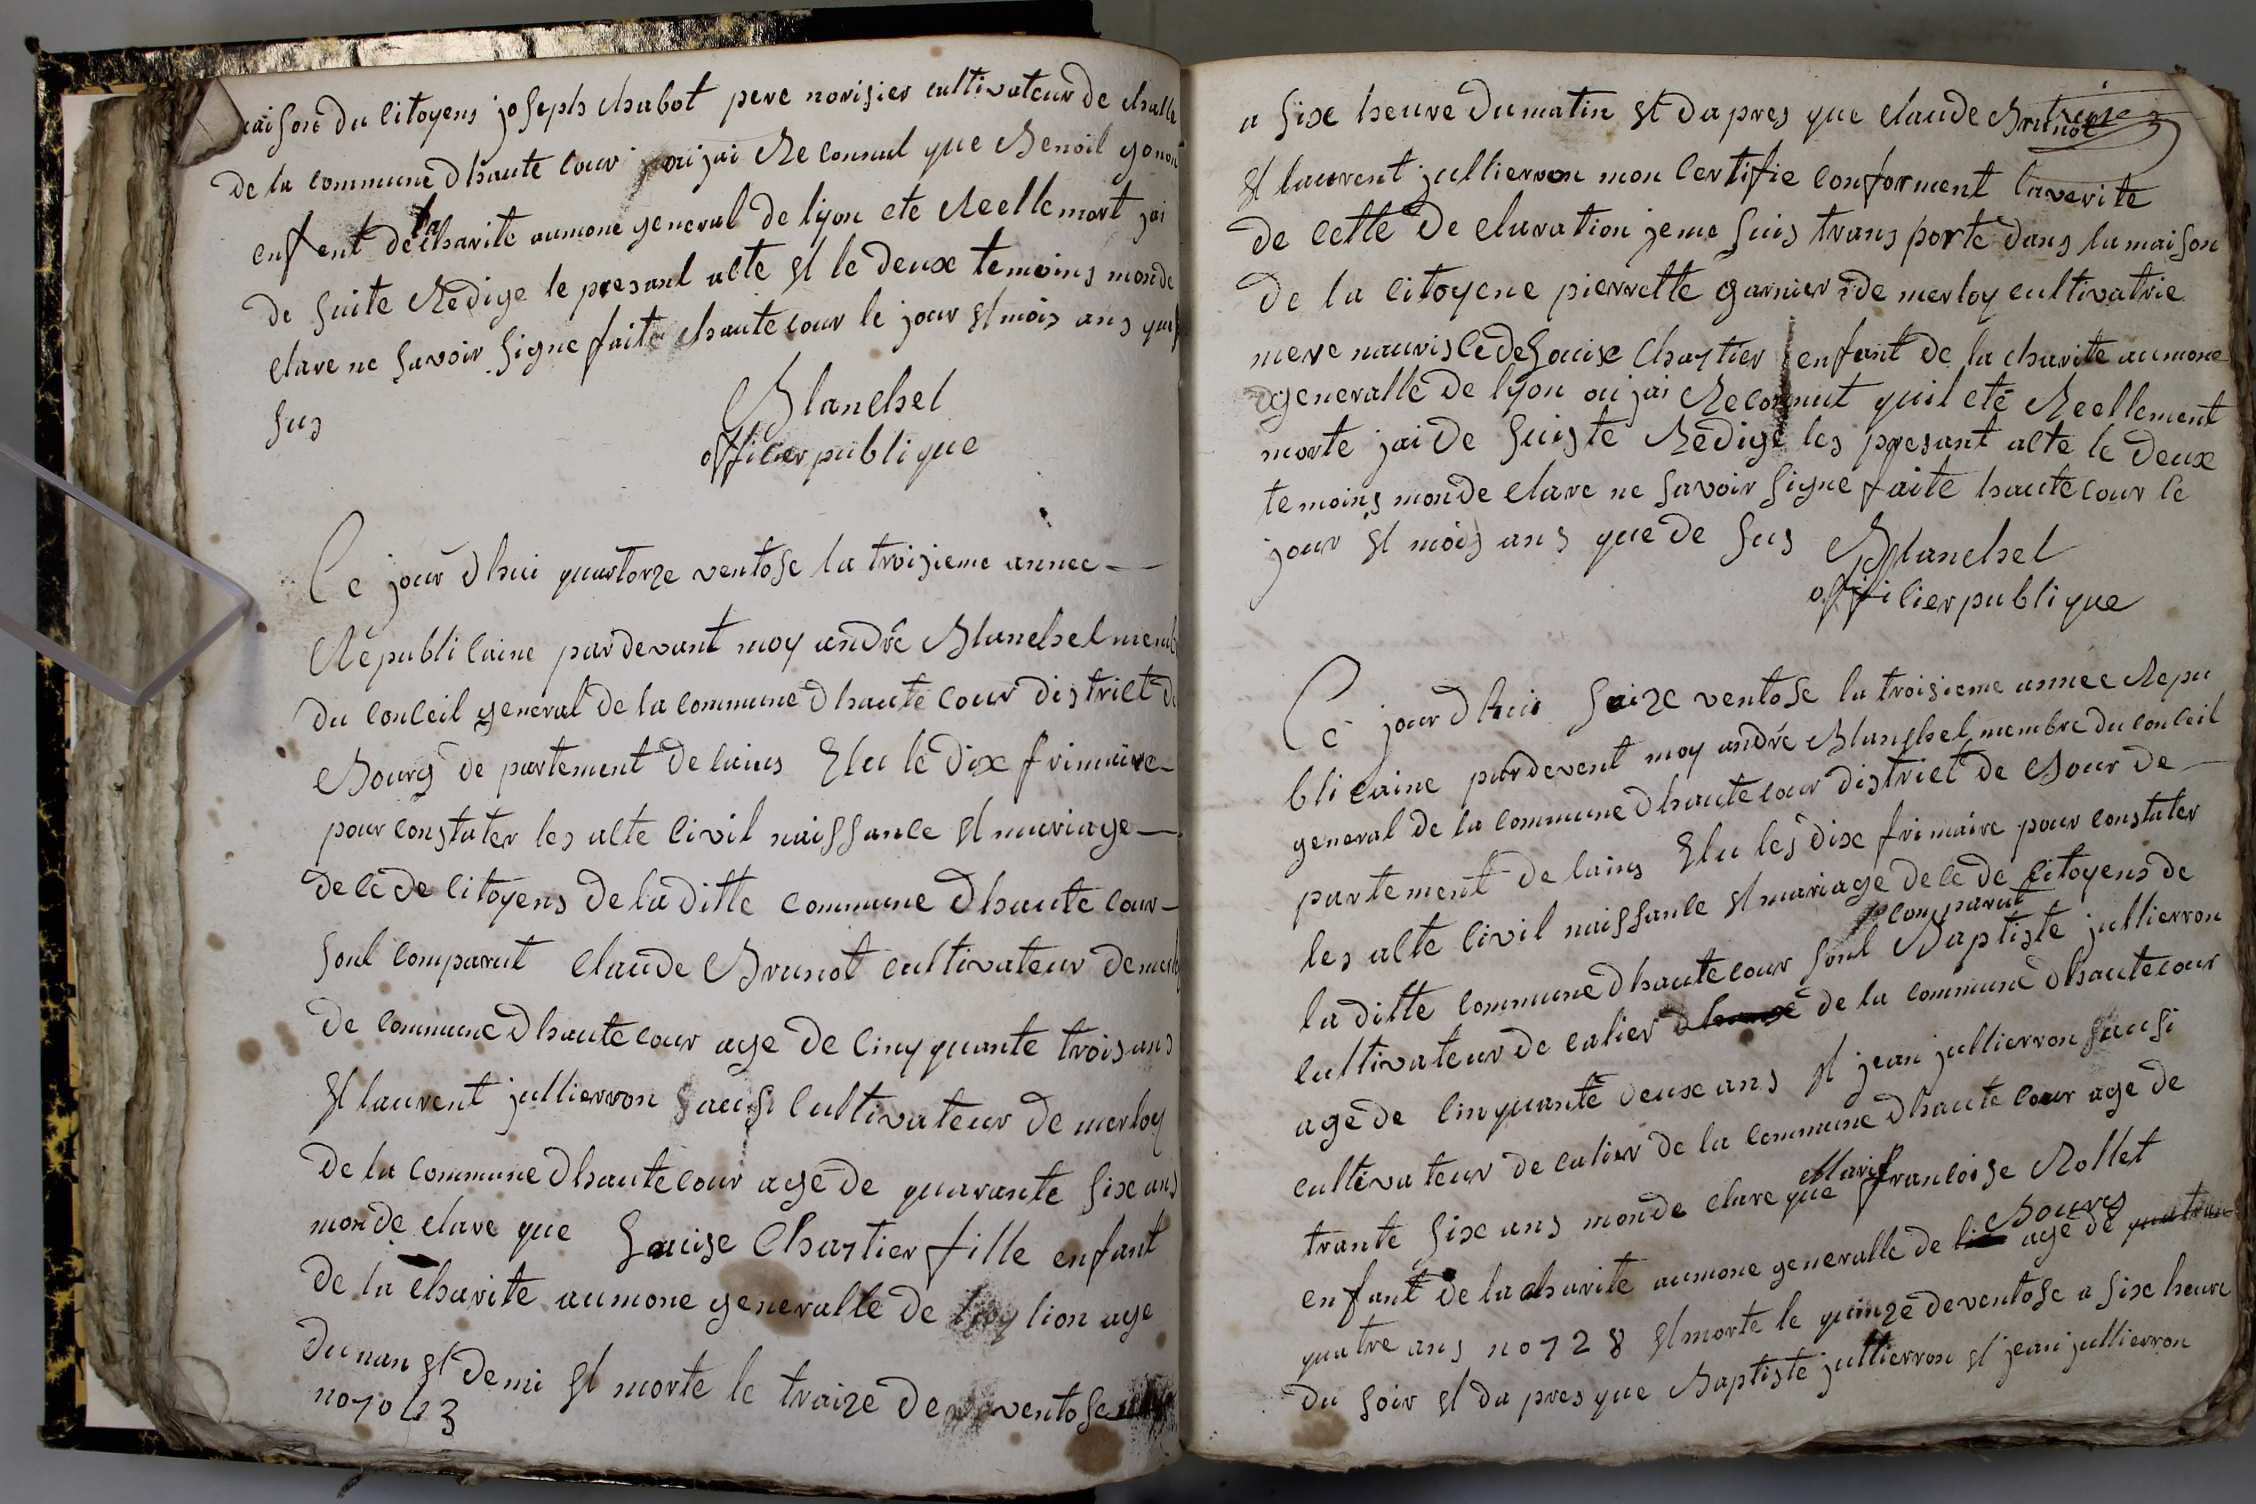 aison du citoyens joseph chabot pere norisier cultivateur de challe
de la commune dhaute cour ou jai Reconnul que Benoil gonon
enfent de la charite aumone general de lyon ete Reelle mort jai
de suite Redige le presanl acte et le deux temoins monde
clare ne savoir signe faite haute cour le jour et mois ans que
sus
Blanchel
officier publique
Ce jour dhui quatorze ventose la troisieme annee
Républicaine pardevant moy andré Blanchel memb
du conceil general de la commune dhaute cour district de
Bourg de partement de lains Elu le dix frimaire
pour constater les acte civil naissance et mariage
decé de citoyens de la ditte commune dhaute cour
sont comparut claude Brunot cultivateur de merloy
de commune dhaute cour age de cinqquante trois ans
et laurent jullierron saussi cultivateur de merloy
de la commune dhaute cour agé de quarante six ans
monde clare que Louise Chartier fille enfant
de la charite aumone generalle de lion age
dunan et demi et morte le traize de ventose
no 7043
treize
a six heure du matin et dapres que claude Brunot
et laurent jullierron mon certifie conforment laverite
de cette de claration jeme suis trans porté dans la maison
de la citoyene pierrette garnier de merloy cultivatrie
mere nauris ce de Louise Chartier enfant de la charite aumone
generalle de lyon ou jai Reconnut quil eté Reellement
morte jai de suiste Redige les presant acte le deux
temoins monde clare ne savoir signe faite haute cour le
jour et mois ans que de sus Blanchel
officier publique
Ce jour dhui saize ventose la troisieme annee Repu
blicaine pardevent moy andré Blanchel membre du conceil
general de la commune dhaute cour district de Bour de
partement de lains Elu les dix frimaire pour constater
les acte civil naissance et mariage decé de citoyens de
comparut
la ditte commune dhaute cour sont Baptiste jullierron
cultivateur de calier de la commune dhaute cour
age de cinquante deux ans et jean jullierron saussi
cultivateur de calier de la commune dhaute cour age de
trante six ans monde clare que Marie francoise Rollet
Bourg
enfant de la charite aumone generalle de age de
quatre ans no 728 et morte le quinze de ventose a six heure
du soir et da pres que Baptiste jullierron et jean jullierron